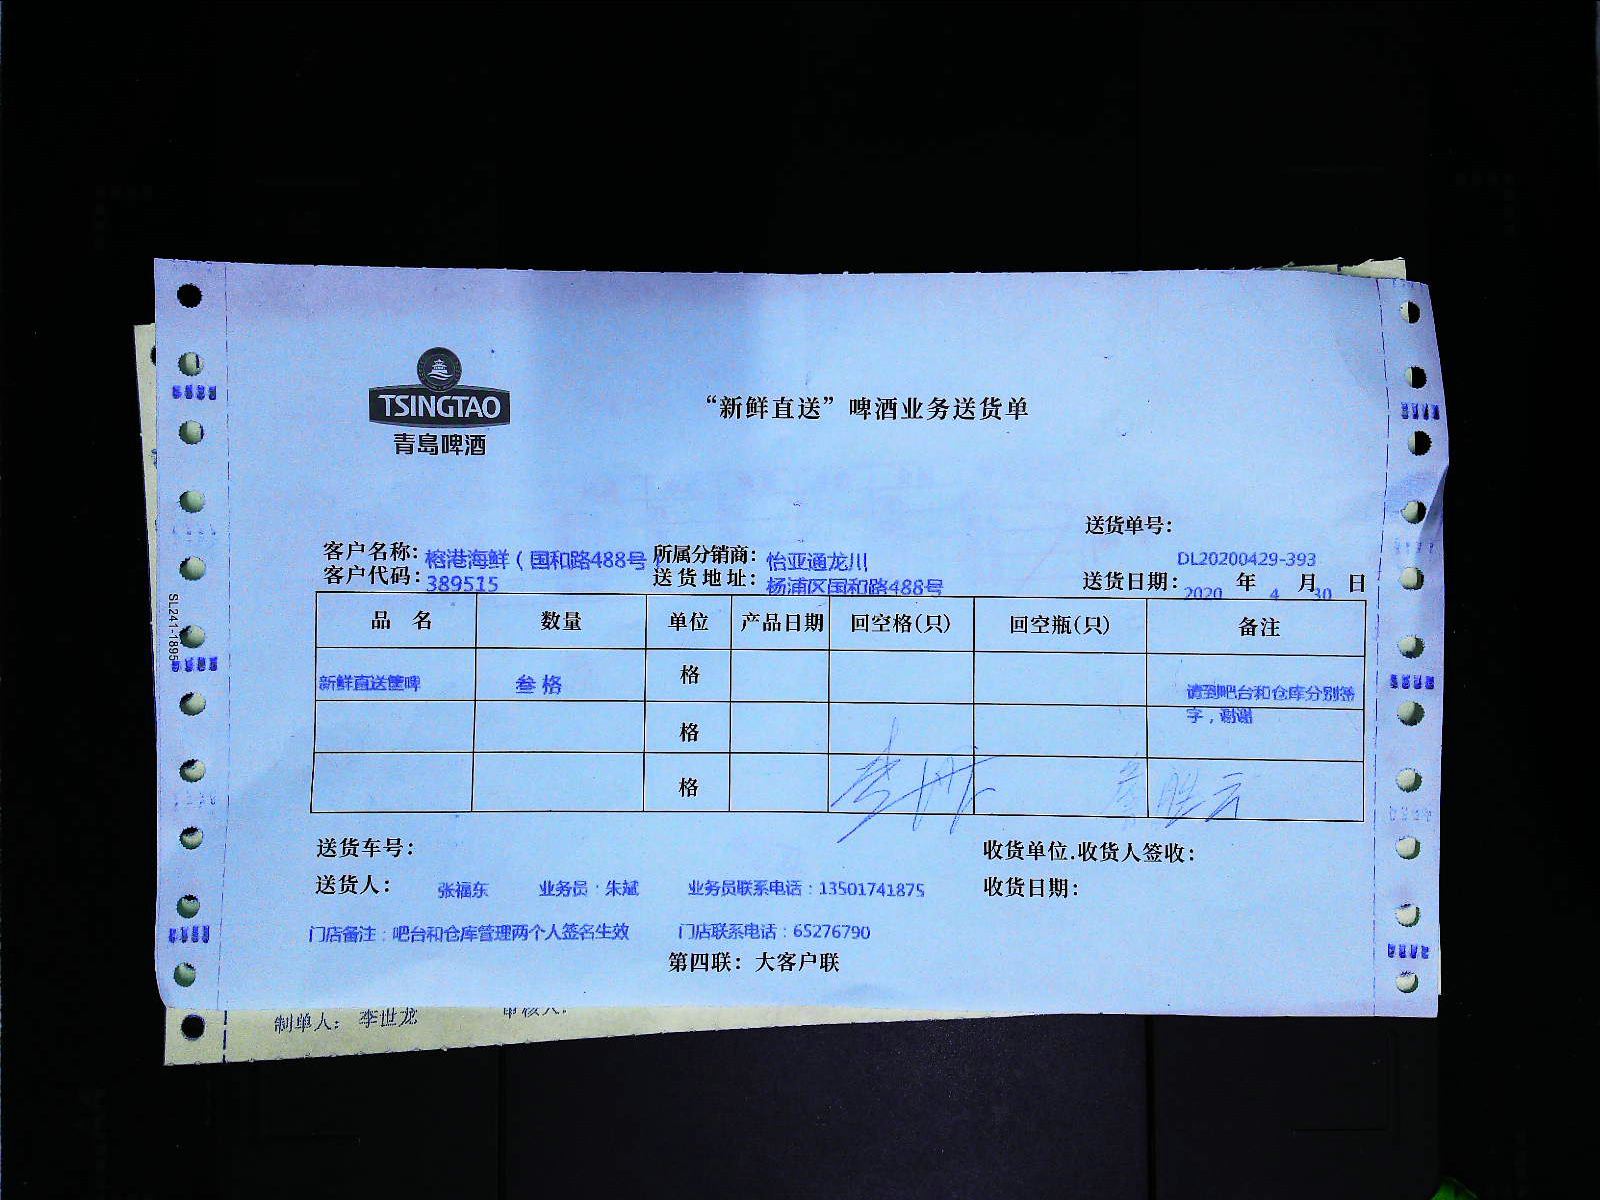 TSINGTAO
青岛啤酒
“新鲜直送”啤酒业务送货单
送货单号：
DL20200429-393
客户名称：榕港海鲜（国和路488号 所属分销商：怡亚通龙川
客户代码：389515 送货地址：杨浦区国和路488号 送货日期：2020 年 4 月 30 日
品 名 数量 单位 产品日期 回空格(只) 回空瓶(只) 备注
新鲜直送筐啤 叁 格 格 请到吧台和仓库分别签
字，谢谢
格
格
送货车号： 收货单位.收货人签收：
送货人： 张福东 业务员：朱斌 业务员联系电话：13501741875 收货日期：
门店备注：吧台和仓库管理两个人签名生效 门店联系电话：65276790
第四联：大客户联
制单人： 李世龙 审核人：
SL241-1895